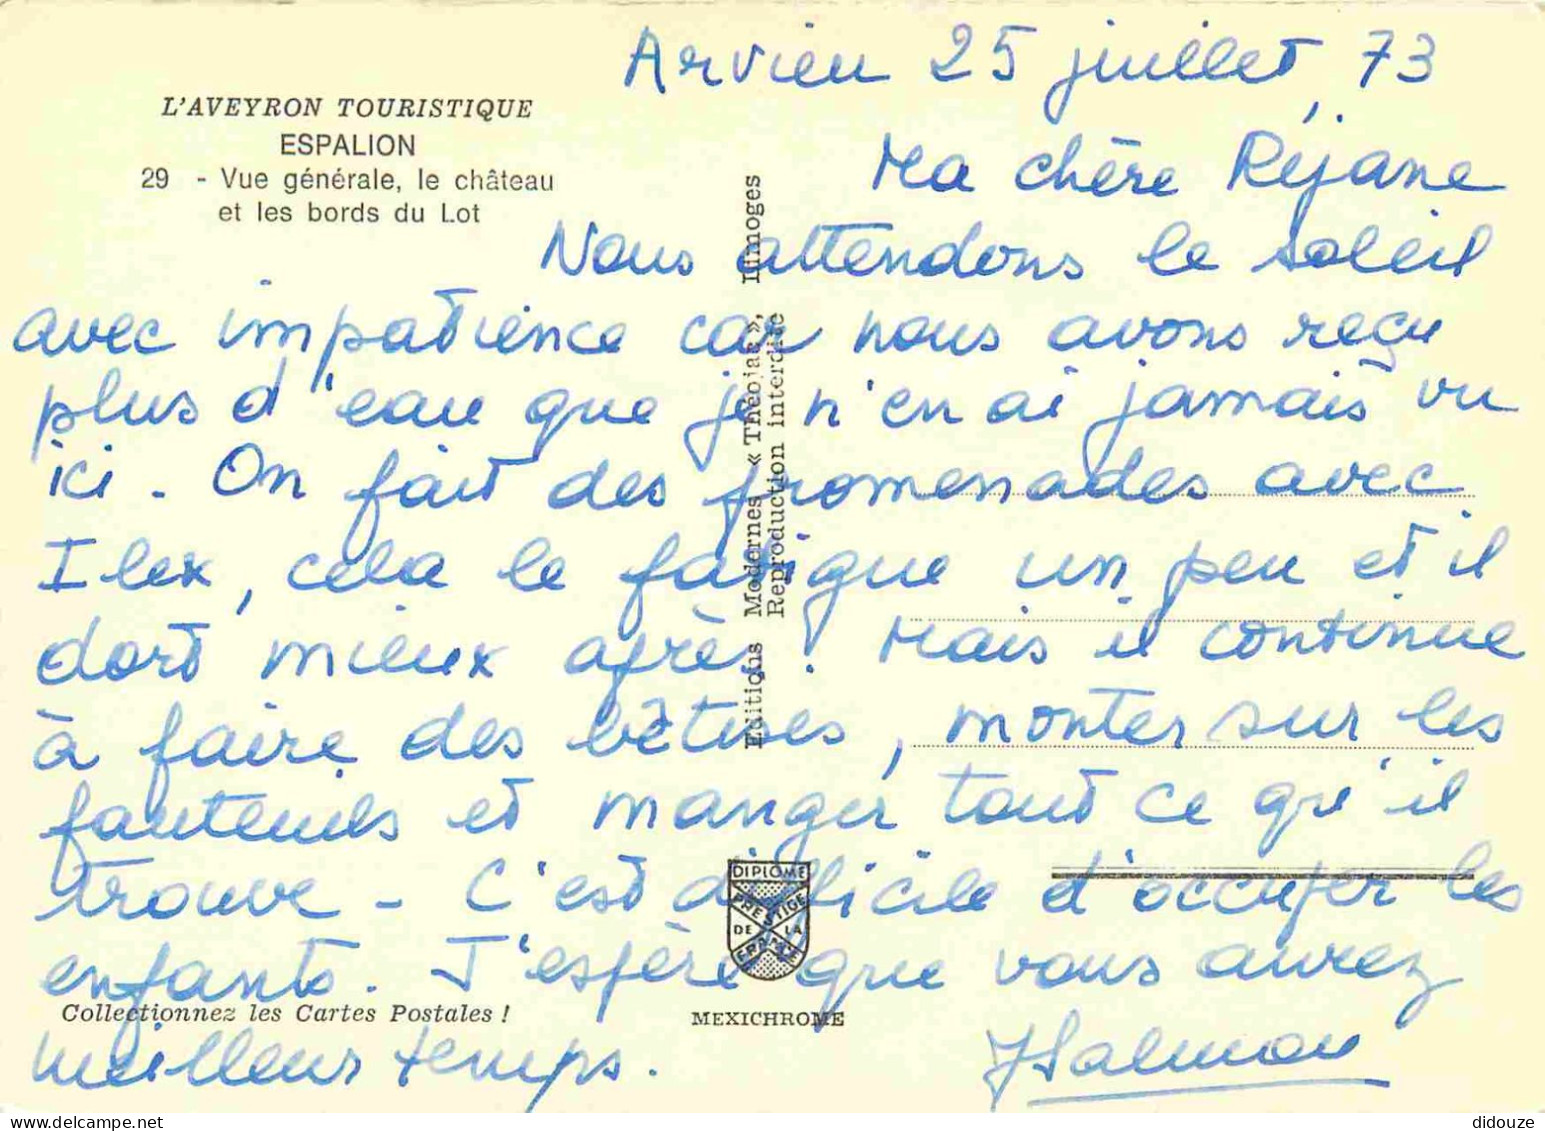 Arvieu 25 juillet, 73
L'AVEYRON TOURISTIQUE
ESPALION
29 - Vue générale, le château
et les bords du Lot
Ma chère Réjane
Nous attendons le soleil
avec impatience car nous avons reçu
plus d'eau que je n'en ai jamais vu
ici. On fait des promenades avec
Ilex, cela le fatigue un peu et il
dort mieux après. Mais il continue
à faire des bêtises, monter sur les
fauteuils et manger tout ce qu'il
trouve - C'est difficile d'occuper les
enfants. J'espère que vous aurez
meilleur temps.
Editions Modernes « Théojac », Limoges
Reproduction interdite
DIPLOME
PRESTIGE
DE LA
FRANCE
Collectionnez les Cartes Postales !
MEXICHROME
didouze